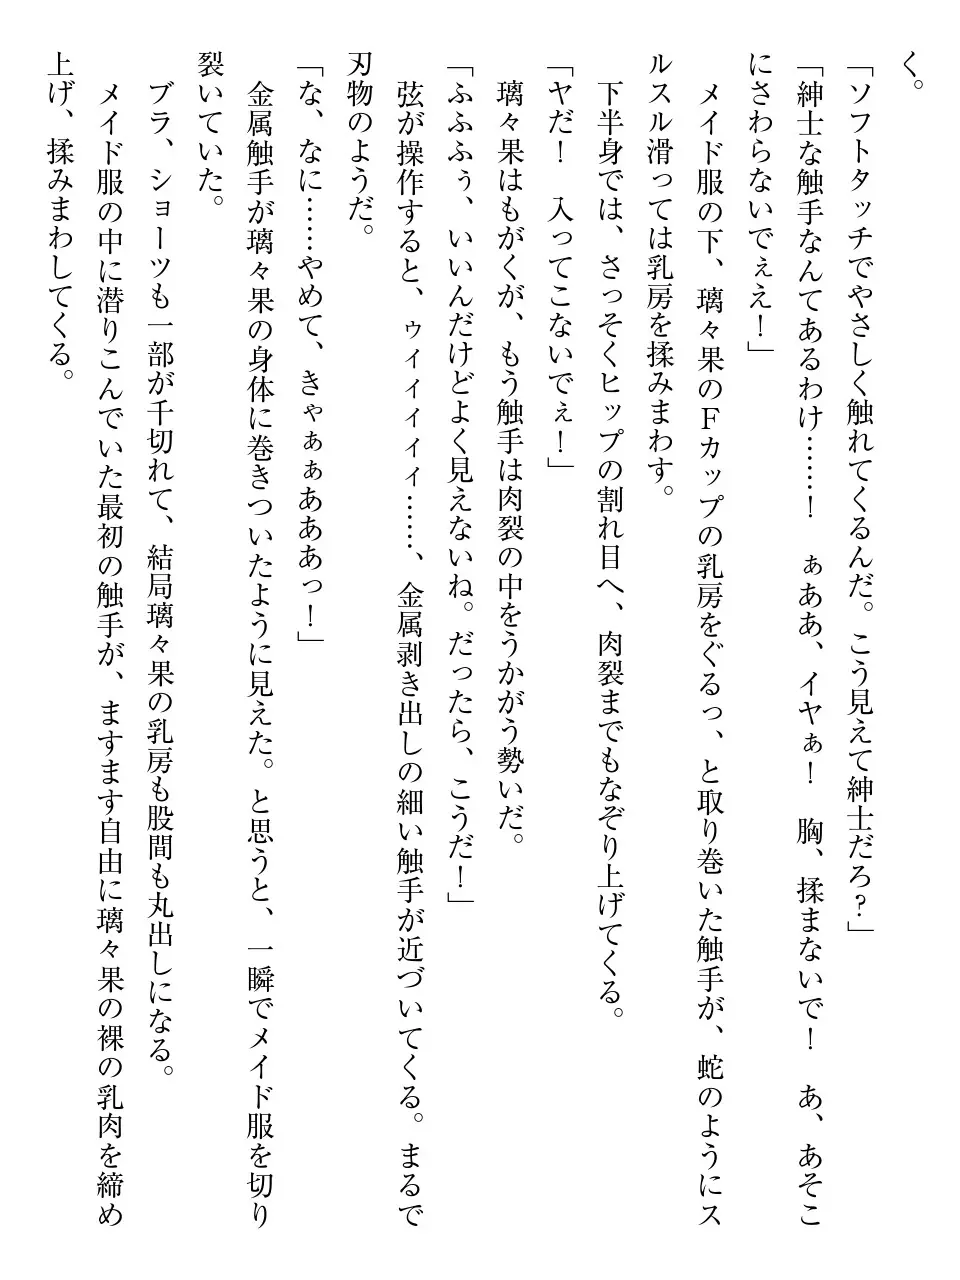 く。
「ソフトタッチでやさしく触れてくるんだ。こう見えて紳士だろ?」
「紳士な触手なんてあるわけ……！　ぁああ、イヤぁ！　胸、揉まないで！　あ、あそこ
にさわらないでぇえ！」
　メイド服の下、璃々果のＦカップの乳房をぐるっ、と取り巻いた触手が、蛇のようにス
ルスル滑っては乳房を揉みまわす。
　下半身では、さっそくヒップの割れ目へ、肉裂までもなぞり上げてくる。
「ヤだ！　入ってこないでぇ！」
　璃々果はもがくが、もう触手は肉裂の中をうかがう勢いだ。
「ふふふぅ、いいんだけどよく見えないね。だったら、こうだ！」
　弦が操作すると、ゥィィィィ……、金属剥き出しの細い触手が近づいてくる。まるで
刃物のようだ。
「な、なに……やめて、きゃぁぁあああっ！」
　金属触手が璃々果の身体に巻きついたように見えた。と思うと、一瞬でメイド服を切り
裂いていた。
　ブラ、ショーツも一部が千切れて、結局璃々果の乳房も股間も丸出しになる。
　メイド服の中に潜りこんでいた最初の触手が、ますます自由に璃々果の裸の乳肉を締め
上げ、揉みまわしてくる。